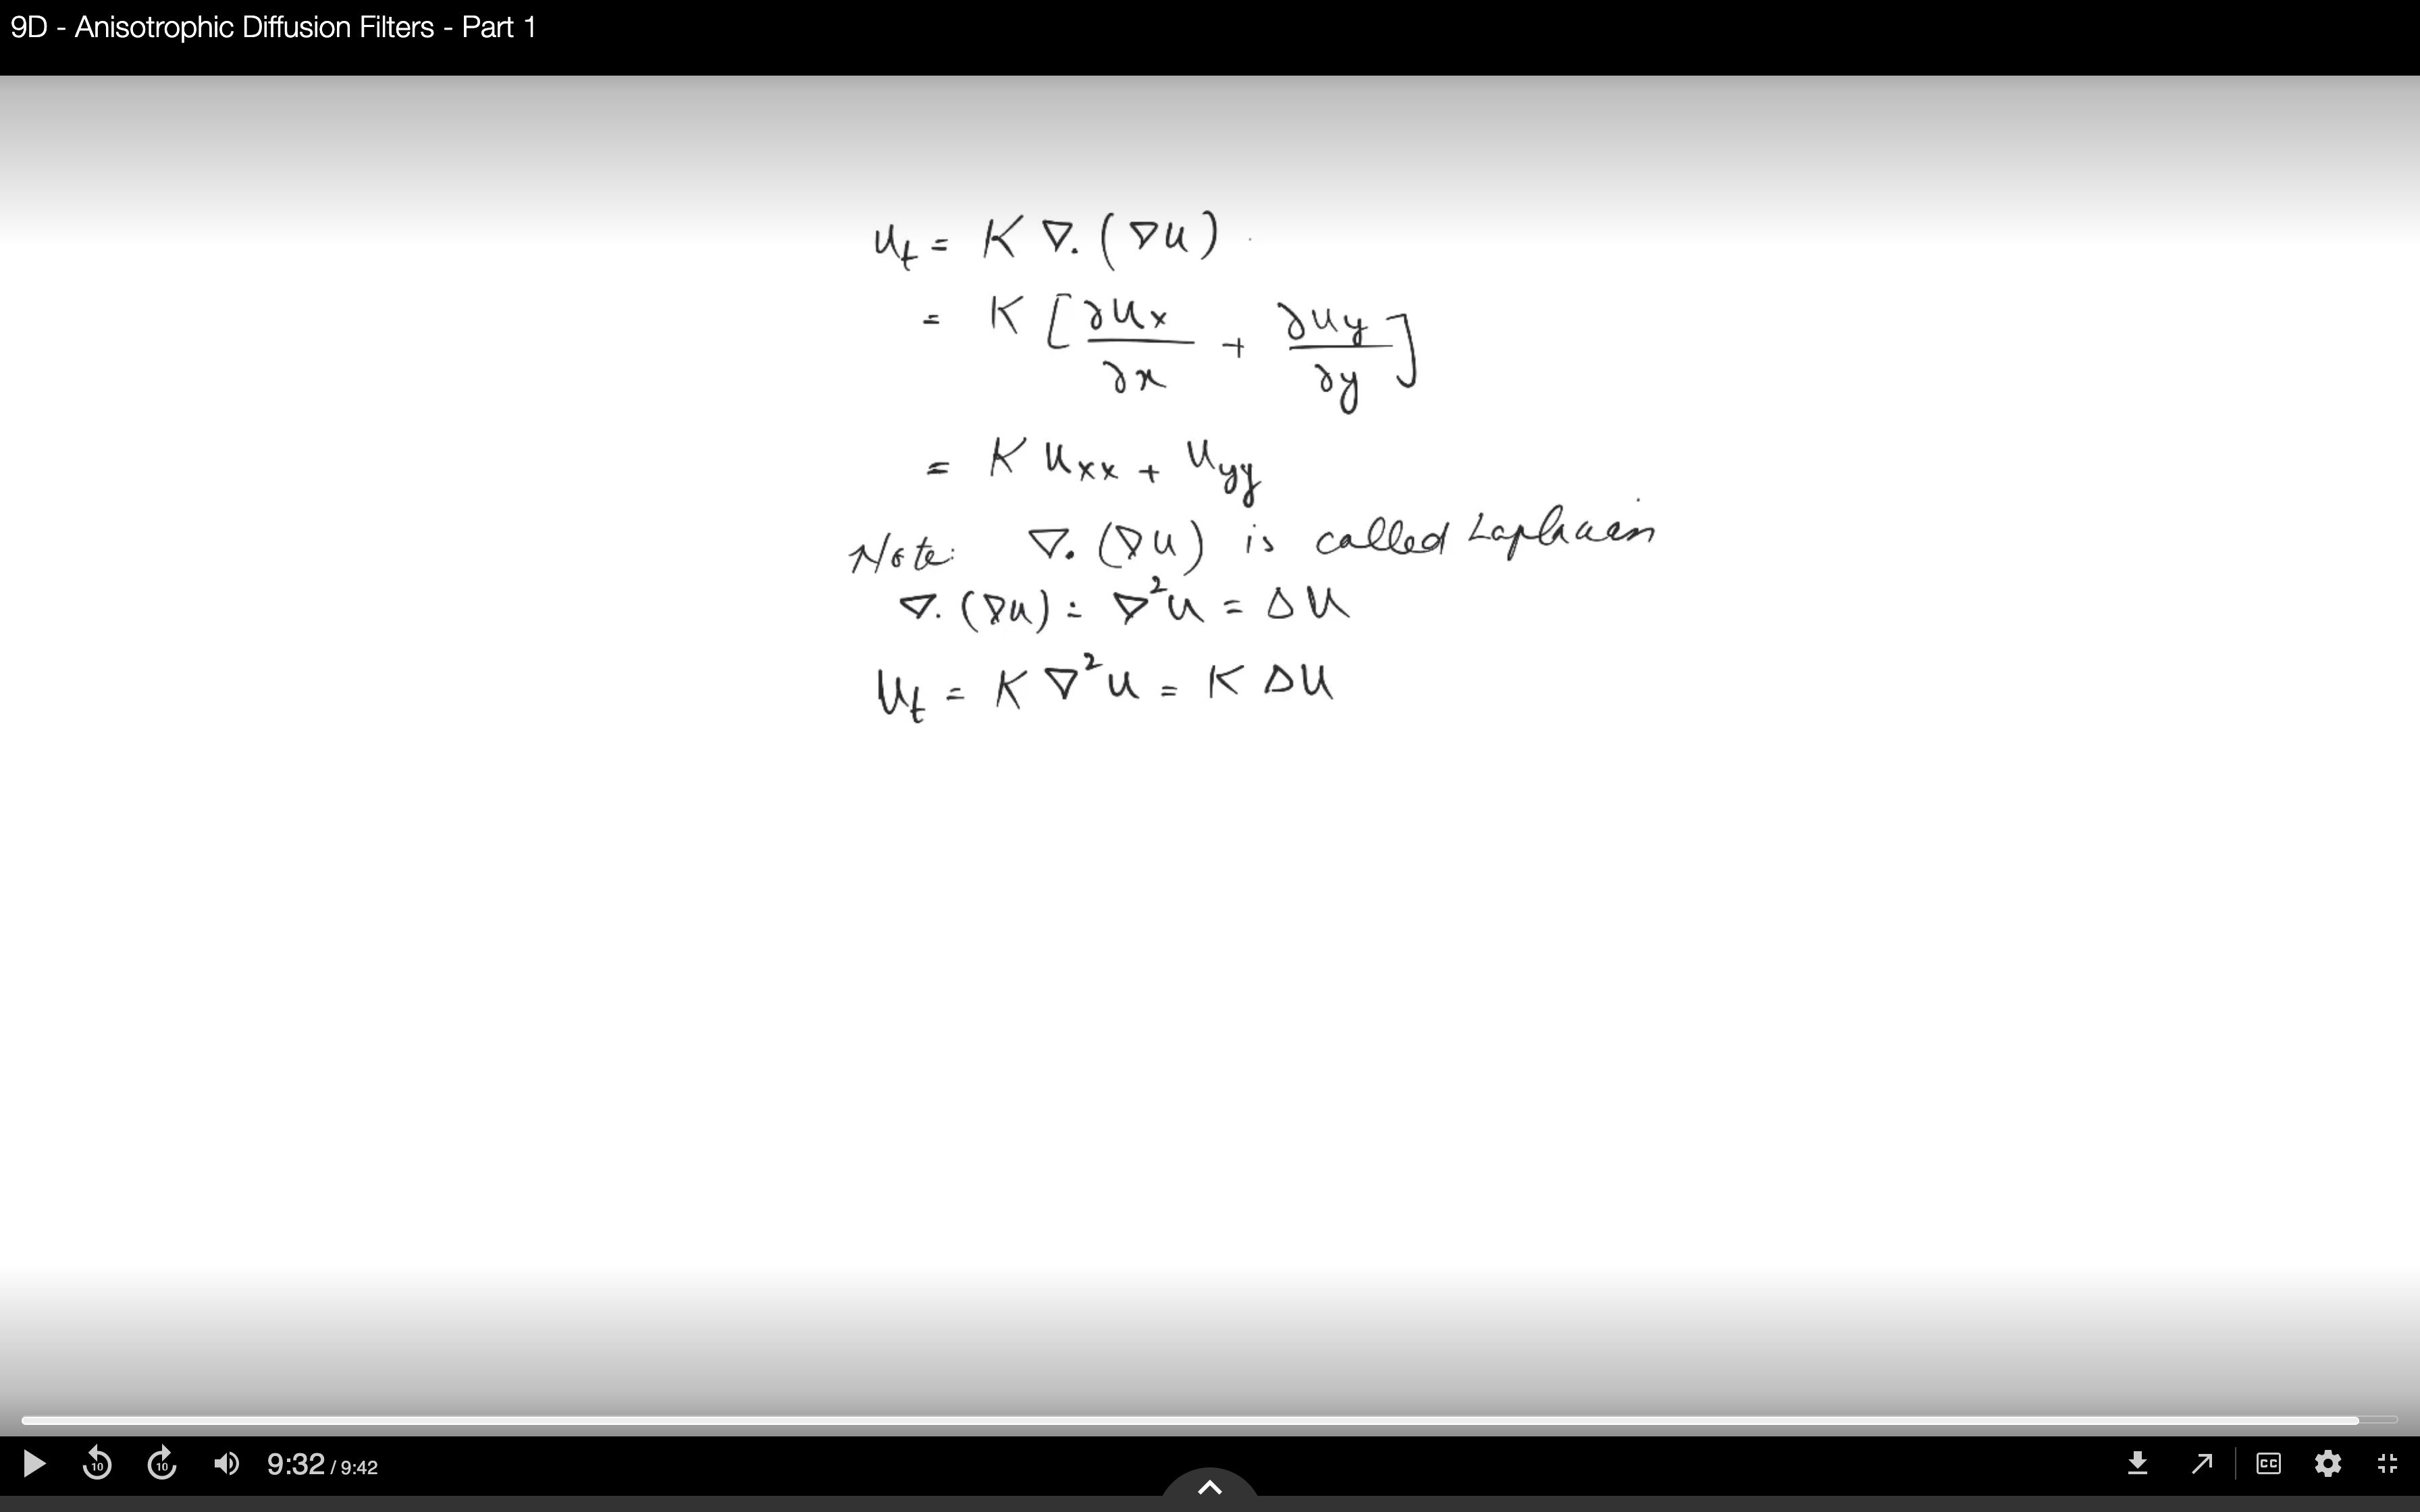 9D - Anisotrophic Diffusion Filters - Part 1
u_t = K ∇. (∇u)
= K [∂u_x/∂x + ∂u_y/∂y]
= K u_xx + u_yy
Note: ∇. (∇u) is called Laplacian
∇. (∇u) = ∇²u = Δu
u_t = K ∇²u = K Δu
10 10 9:32 / 9:42 CC